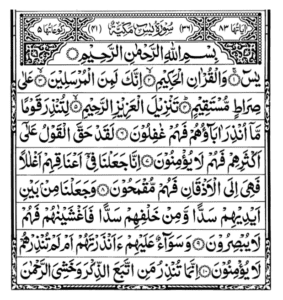 اٰیاتُهَا ٨٣ (٣٦) سُوْرَةُ يٰسٓ مَكِّيَّةٌ (٤١) رُكُوْعَاتُهَا ٥
بِسْمِ اللهِ الرَّحْمٰنِ الرَّحِيْمِ
يٰسٓ ۝١ وَالْقُرْاٰنِ الْحَكِيْمِ ۝٢ اِنَّكَ لَمِنَ الْمُرْسَلِيْنَ ۝٣ عَلٰى
صِرَاطٍ مُّسْتَقِيْمٍ ۝٤ تَنْزِيْلَ الْعَزِيْزِ الرَّحِيْمِ ۝٥ لِتُنْذِرَ قَوْمًا
مَّاۤ اُنْذِرَ اٰبَآؤُهُمْ فَهُمْ غٰفِلُوْنَ ۝٦ لَقَدْ حَقَّ الْقَوْلُ عَلٰۤى
اَكْثَرِهِمْ فَهُمْ لَا يُؤْمِنُوْنَ ۝٧ اِنَّا جَعَلْنَا فِيْۤ اَعْنَاقِهِمْ اَغْلٰلًا
فَهِيَ اِلَى الْاَذْقَانِ فَهُمْ مُّقْمَحُوْنَ ۝٨ وَجَعَلْنَا مِنْۢ بَيْنِ
اَيْدِيْهِمْ سَدًّا وَّمِنْ خَلْفِهِمْ سَدًّا فَاَغْشَيْنٰهُمْ فَهُمْ
لَا يُبْصِرُوْنَ ۝٩ وَسَوَآءٌ عَلَيْهِمْ ءَاَنْذَرْتَهُمْ اَمْ لَمْ تُنْذِرْهُمْ
لَا يُؤْمِنُوْنَ ۝١٠ اِنَّمَا تُنْذِرُ مَنِ اتَّبَعَ الذِّكْرَ وَخَشِيَ الرَّحْمٰنَ